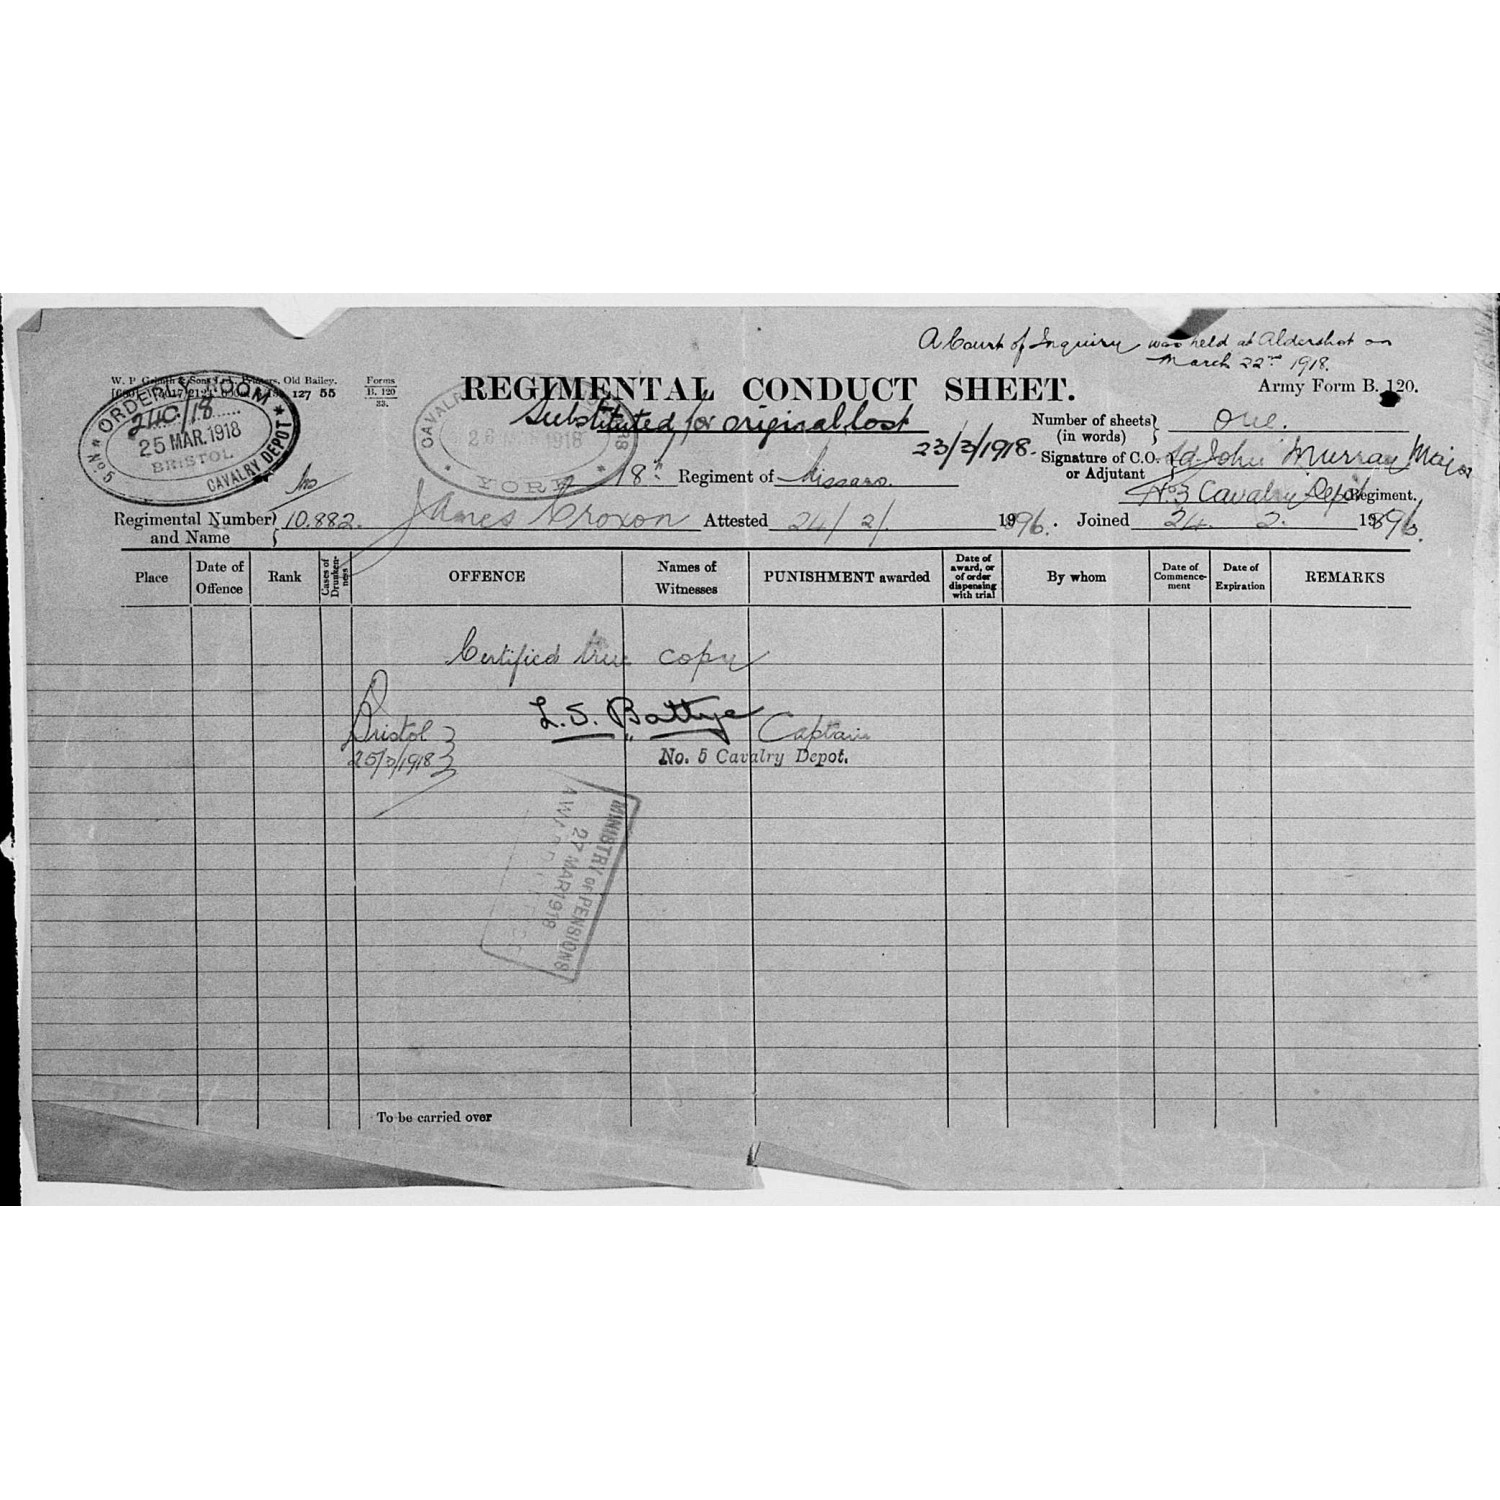 A Court of Inquiry was held at Aldershot on
March 22nd 1918.
W. P. Griffith & Sons Ltd., Printers, Old Bailey.
127 55
Forms
B. 120
33.
REGIMENTAL CONDUCT SHEET.
Army Form B. 120.
Substituted for original lost
23/3/1918.
Number of sheets (in words) } one.
Signature of C.O. or Adjutant } Sd John Murray Major
No. 3 Cavalry Depot Regiment.
18th Regiment of Hussars.
ORDERLY ROOM
25 MAR. 1918
BRISTOL
No. 5 CAVALRY DEPOT
CAVALRY
1918
YORK
Regimental Number and Name } 10.882. James Croxon Attested 24/2/ 1896. Joined 24. 2. 1896.
Place
Date of Offence
Rank
Cases of Drunkenness
OFFENCE
Names of Witnesses
PUNISHMENT awarded
Date of award, or of order dispensing with trial
By whom
Date of Commencement
Date of Expiration
REMARKS
Certified true copy
L. S. Battye Captain
Bristol
25/3/1918
No. 5 Cavalry Depot.
MINISTRY OF PENSIONS
27 MAR 1918
To be carried over